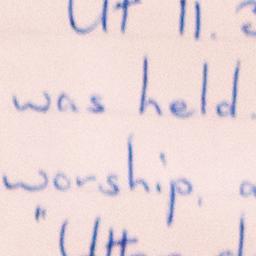 At 11.
was held.
worship, a
"